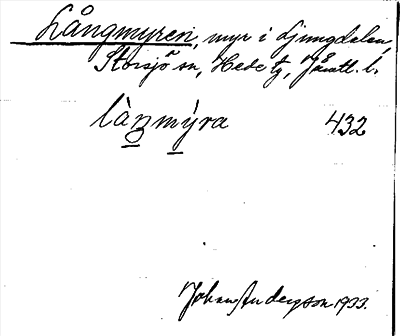 Långmyren, myr i Ljungdalen,
Storsjö sn, Hede tg, Jämtl. l.
làŋmy̆ra 432
Johan Anderson 1933.